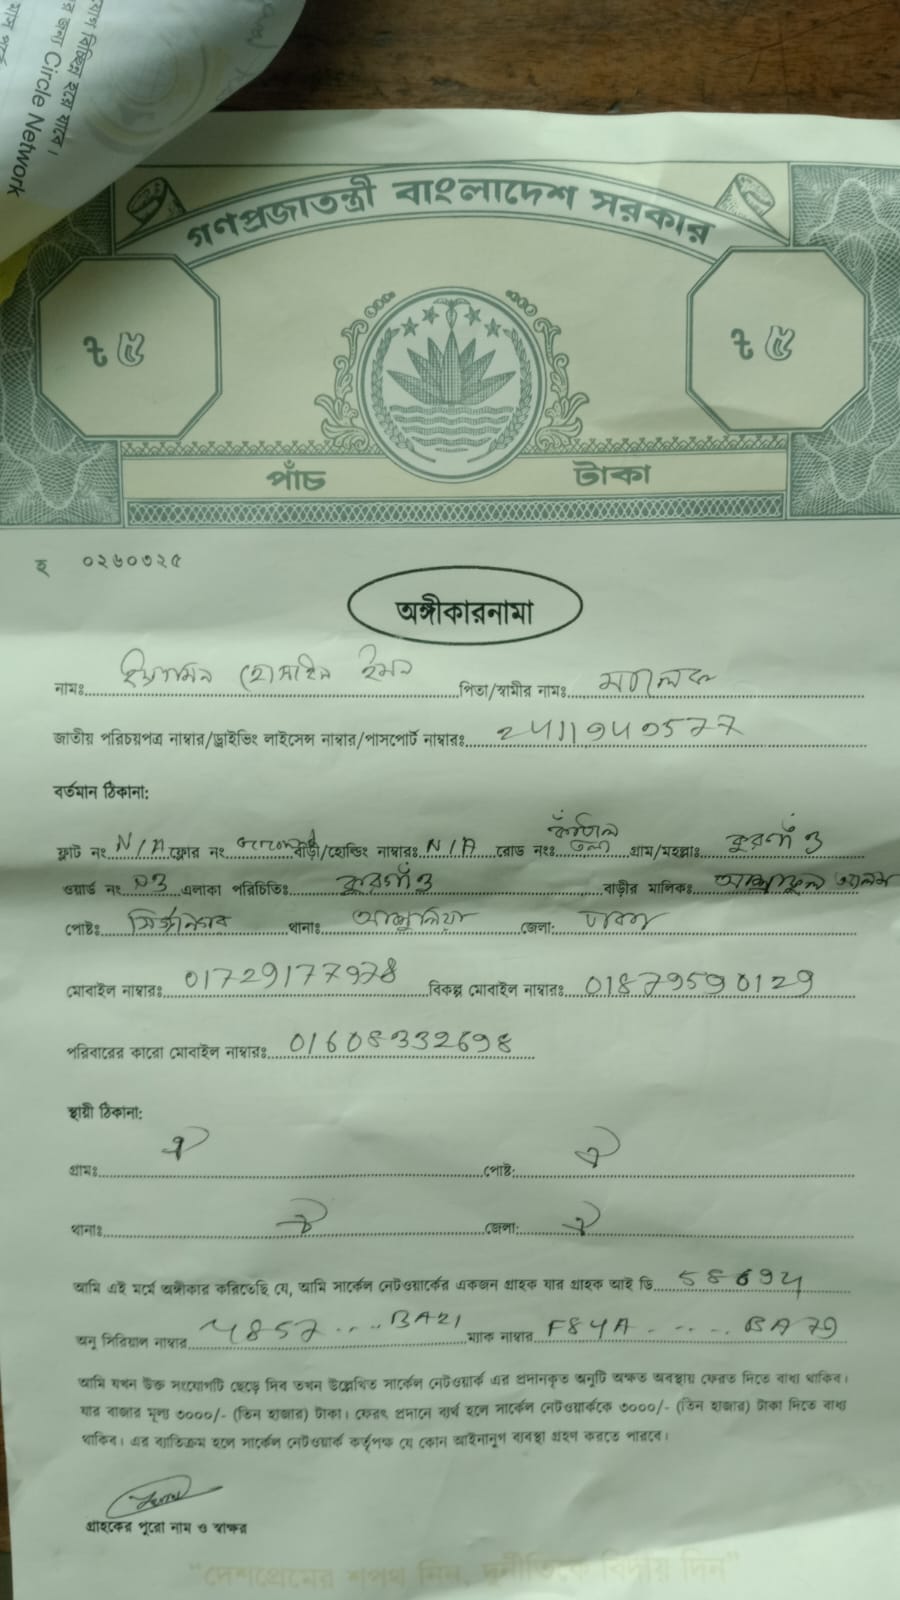 যোগ বিচ্ছিন্ন হয়ে যাবে।
র জন্য Circle Network
গণপ্রজাতন্ত্রী বাংলাদেশ সরকার
৳ ৫ ৳ ৫
পাঁচ টাকা
হ ০২৬০৩২৫
অঙ্গীকারনামা
নামঃ হোসাইন ইমন পিতা/স্বামীর নামঃ মালেক
জাতীয় পরিচয়পত্র নাম্বার/ড্রাইভিং লাইসেন্স নাম্বার/পাসপোর্ট নাম্বারঃ
বর্তমান ঠিকানা:
ফ্লাট নং N/A ফ্লোর নং বাড়ী/হোল্ডিং নাম্বারঃ N/A রোড নংঃ কাঁঠাল তলা গ্রাম/মহল্লাঃ কুরগাঁও
ওয়ার্ড নং 03 এলাকা পরিচিতিঃ কুরগাঁও বাড়ীর মালিকঃ আলম
পোষ্টঃ থানাঃ আশুলিয়া জেলা: ঢাকা
মোবাইল নাম্বারঃ 01729177978 বিকল্প মোবাইল নাম্বারঃ 01879590129
পরিবারের কারো মোবাইল নাম্বারঃ 01608332698
স্থায়ী ঠিকানা:
গ্রামঃ ঐ পোষ্ট: ঐ
থানাঃ ঐ জেলা: ঐ
আমি এই মর্মে অঙ্গীকার করিতেছি যে, আমি সার্কেল নেটওয়ার্কের একজন গ্রাহক যার গ্রাহক আই ডি
অনু সিরিয়াল নাম্বার 4857....BA21 ম্যাক নাম্বার F84A.....BA79
আমি যখন উক্ত সংযোগটি ছেড়ে দিব তখন উল্লেখিত সার্কেল নেটওয়ার্ক এর প্রদানকৃত অনুটি অক্ষত অবস্থায় ফেরত দিতে বাধ্য থাকিব।
যার বাজার মূল্য ৩০০০/- (তিন হাজার) টাকা। ফেরৎ প্রদানে ব্যর্থ হলে সার্কেল নেটওয়ার্ককে ৩০০০/- (তিন হাজার) টাকা দিতে বাধ্য
থাকিব। এর ব্যতিক্রম হলে সার্কেল নেটওয়ার্ক কর্তৃপক্ষ যে কোন আইনানুগ ব্যবস্থা গ্রহণ করতে পারবে।
গ্রাহকের পুরো নাম ও স্বাক্ষর
"দেশপ্রেমের শপথ নিন, দুর্নীতিকে বিদায় দিন"